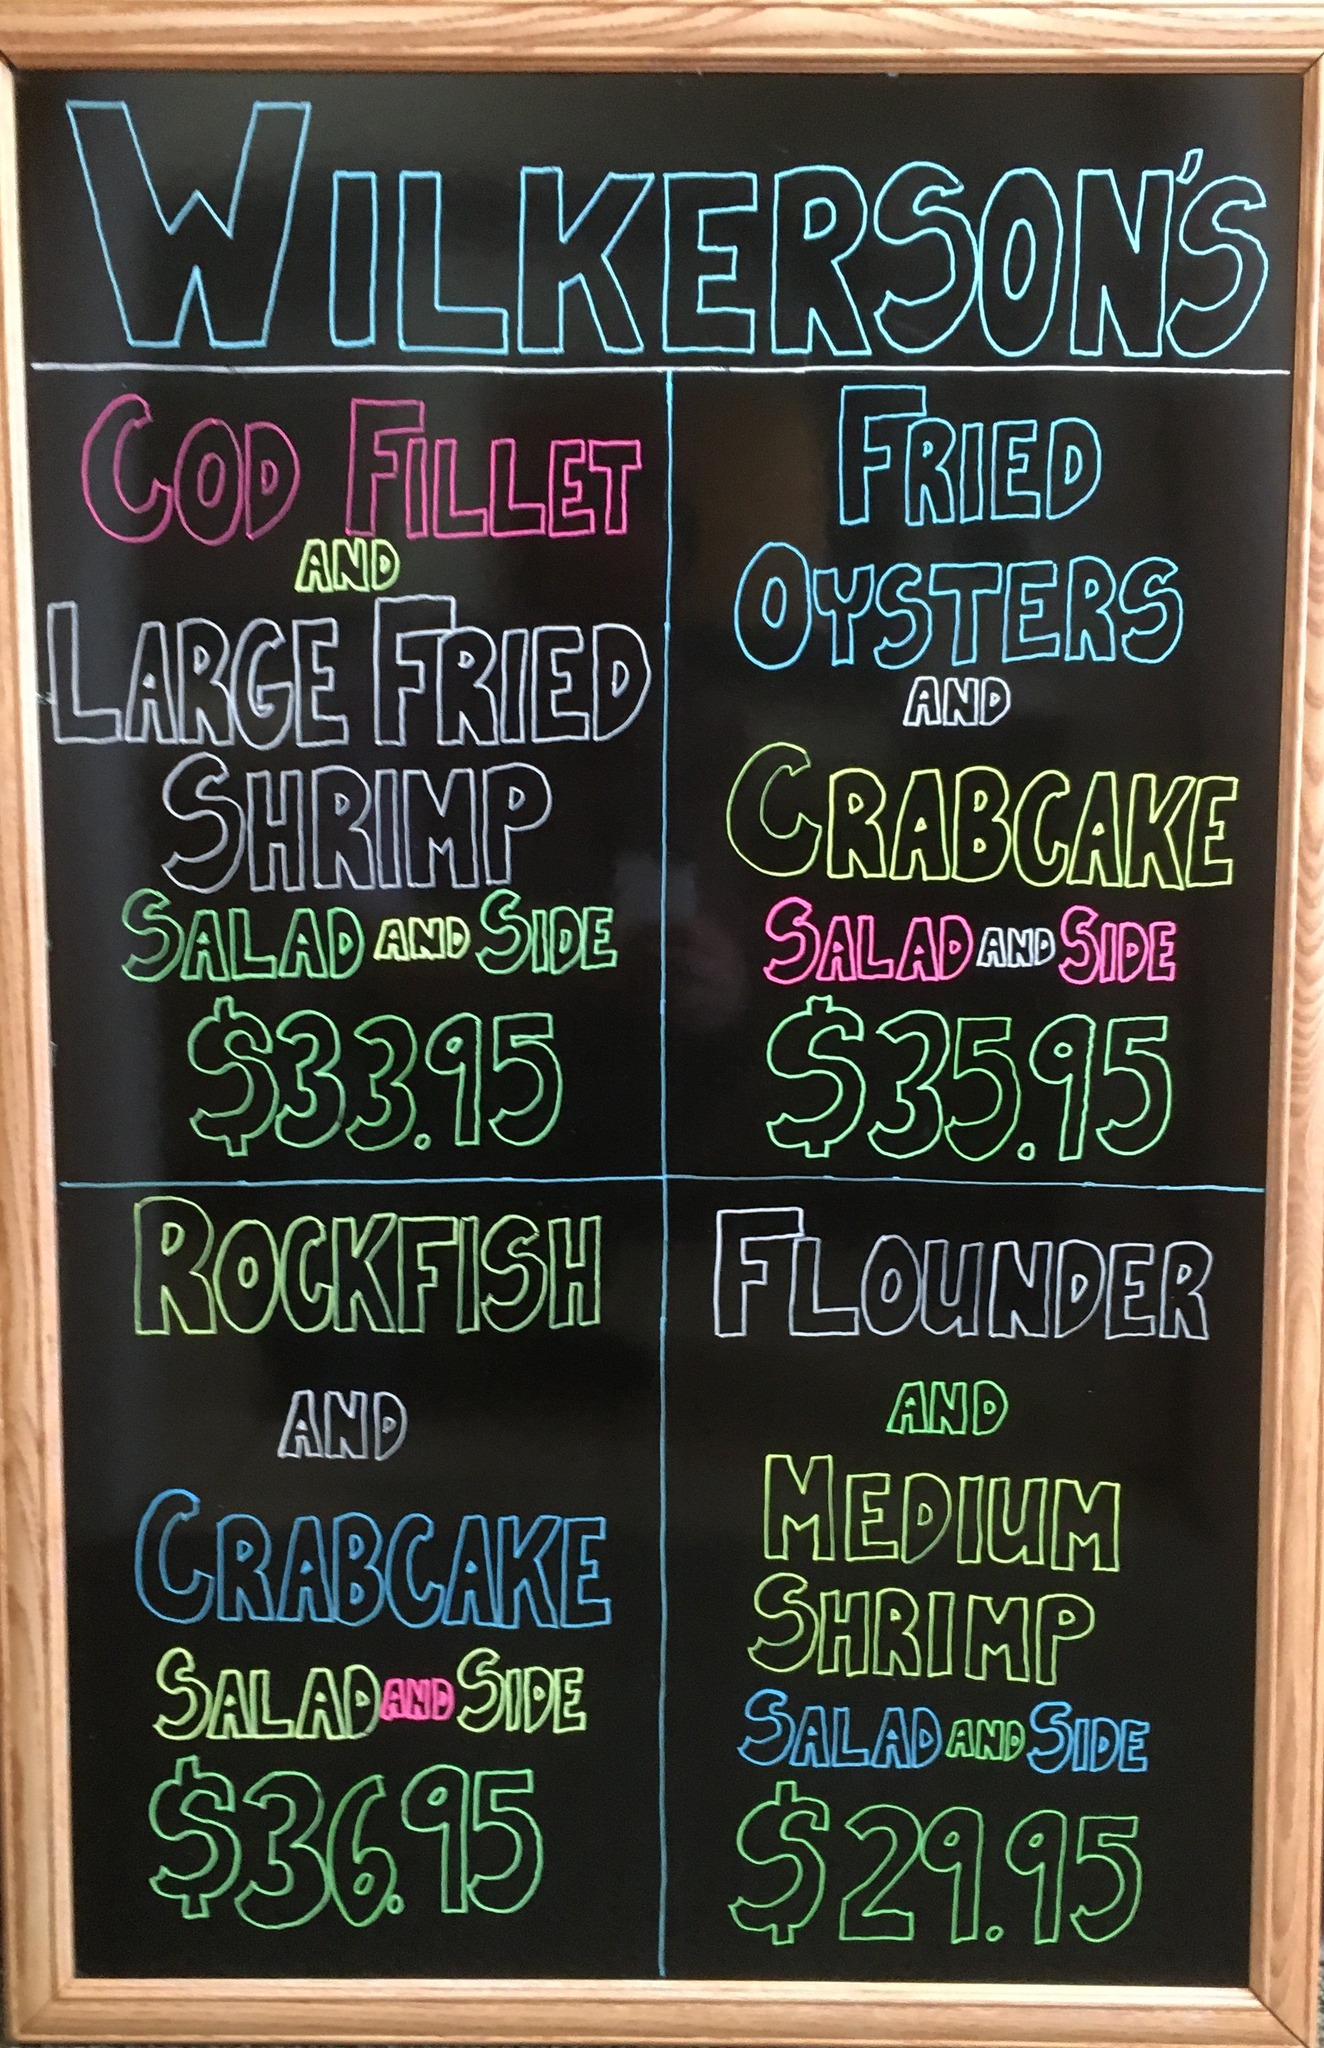 WILKERSON'S
COD FILLET
AND
LARGE FRIED
SHRIMP
SALAD AND SIDE
$33.95
FRIED
OYSTERS
AND
CRABCAKE
SALAD AND SIDE
$35.95
ROCKFISH
AND
CRABCAKE
SALAD AND SIDE
$36.95
FLOUNDER
AND
MEDIUM
SHRIMP
SALAD AND SIDE
$29.95